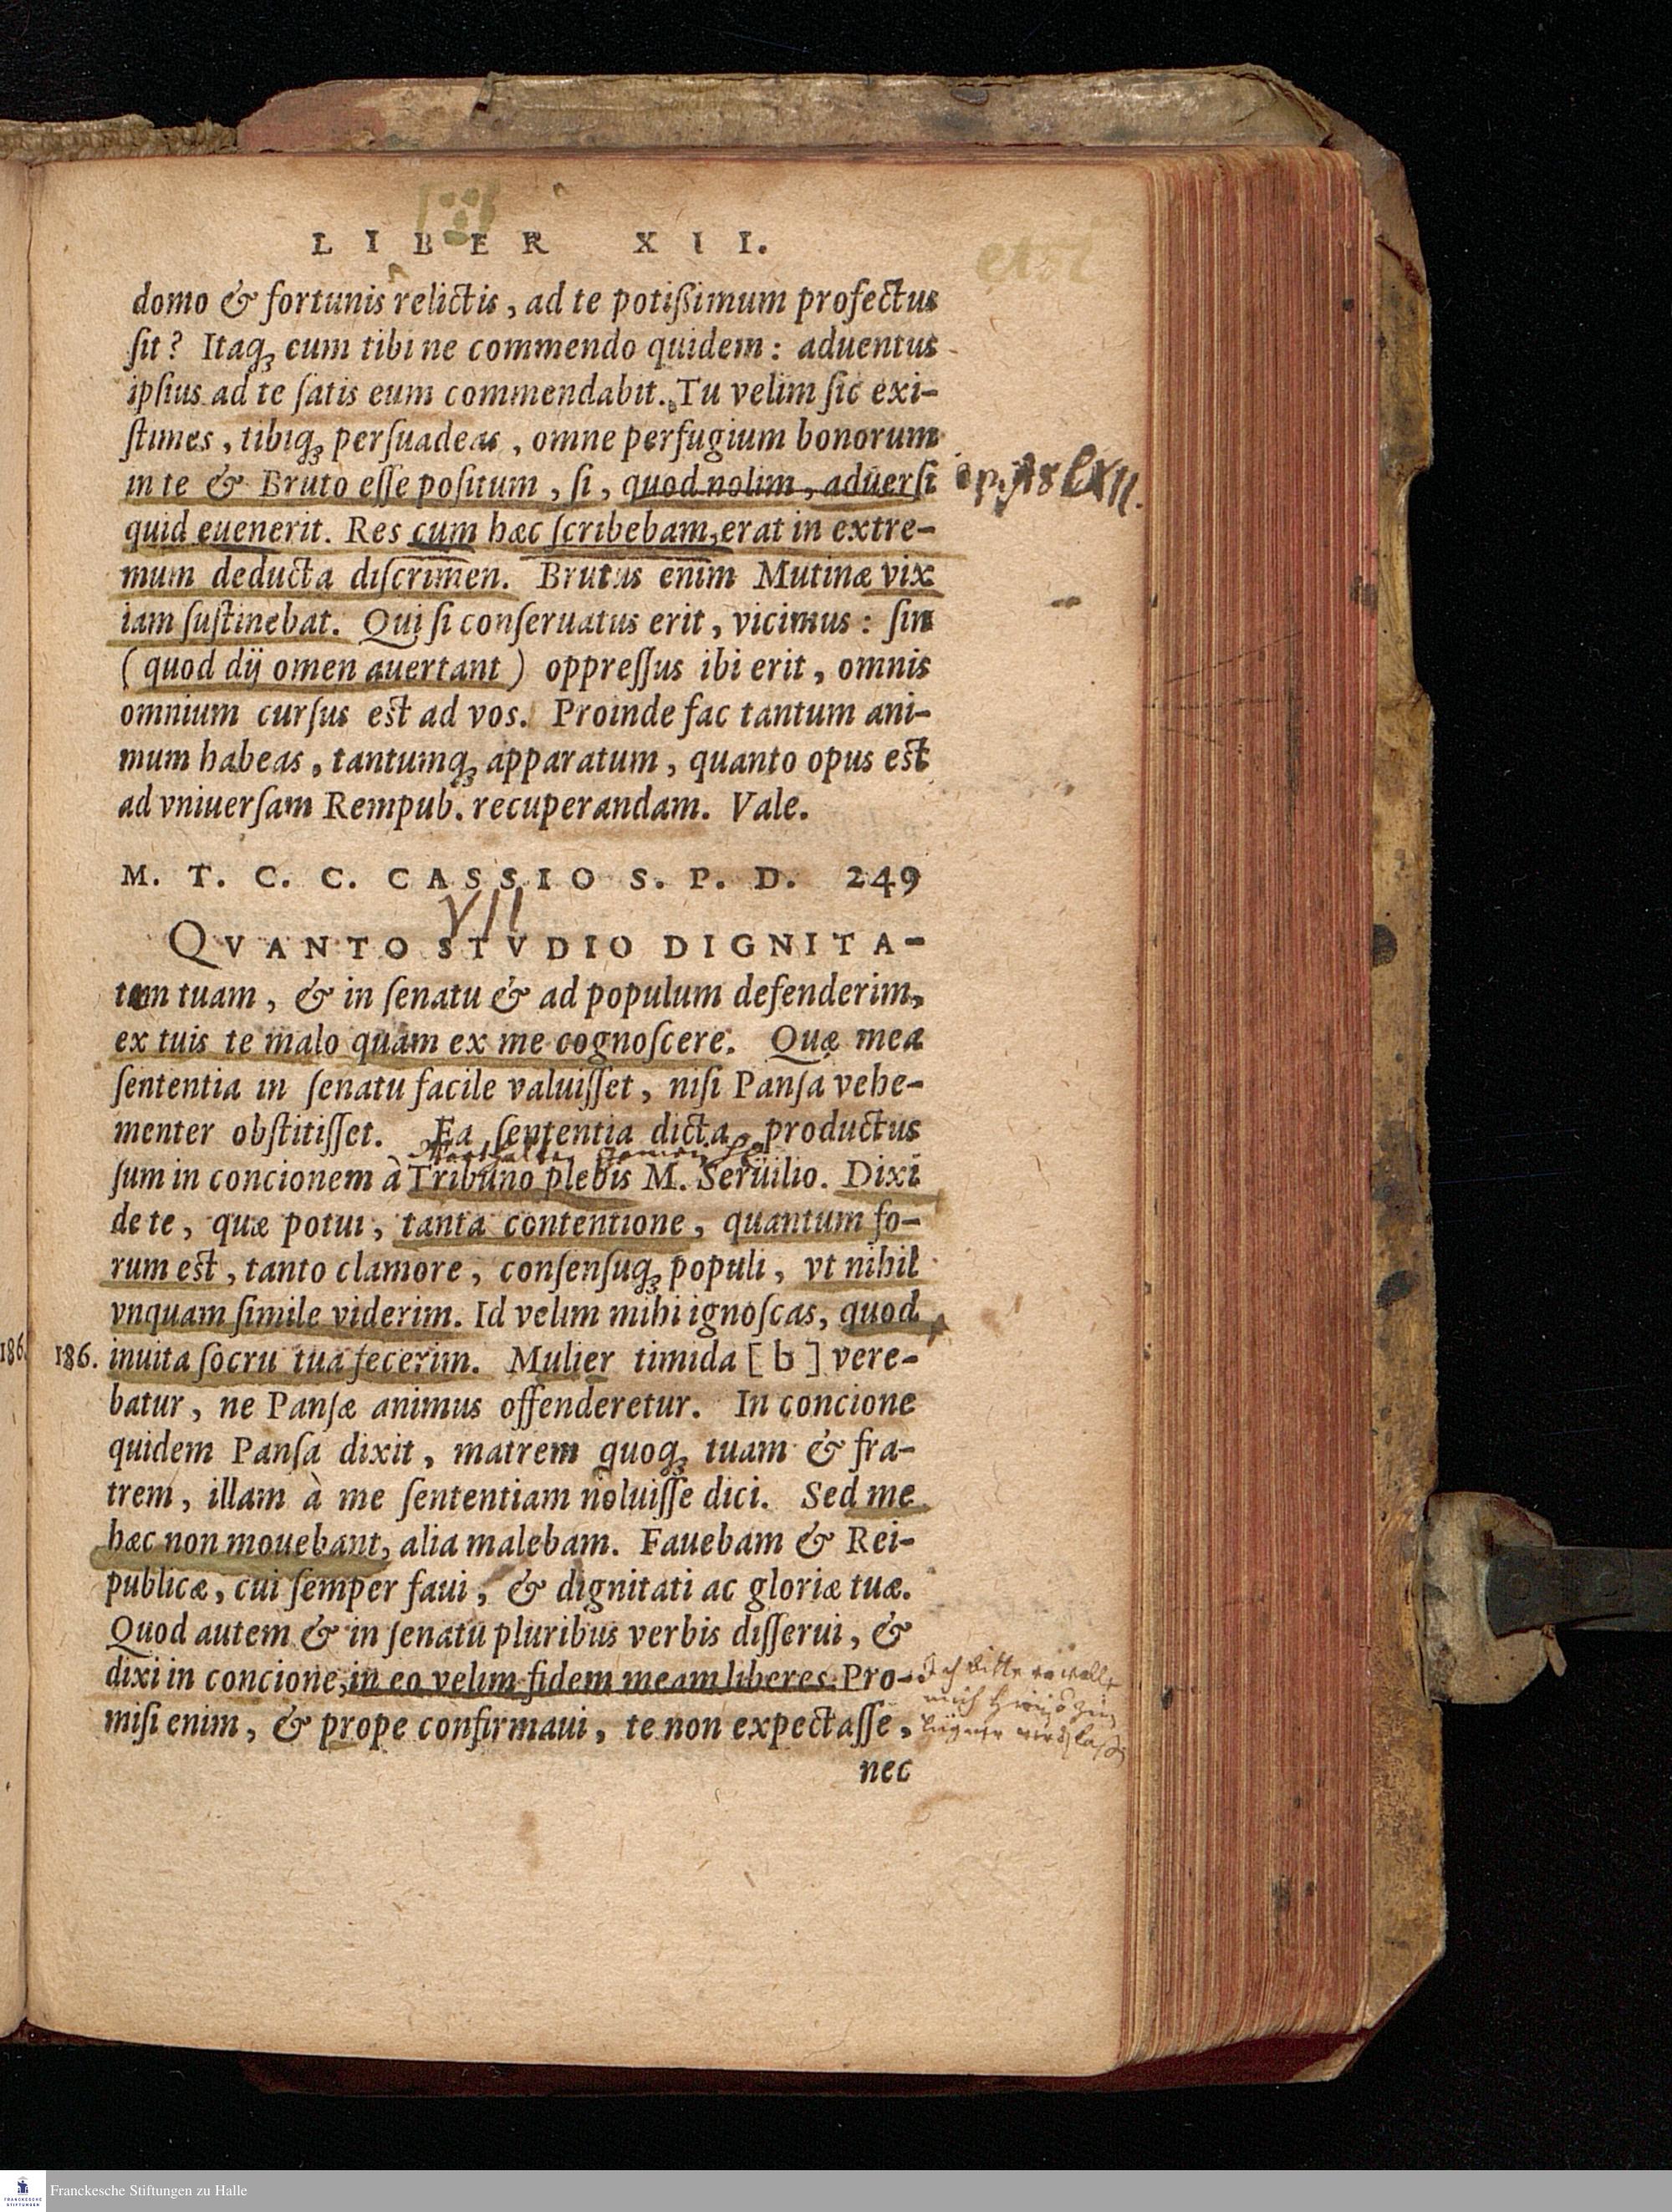 LIBER XII.
etsi
domo & fortunis relictis, ad te potißimum profectus
ſit? Itaqꝫ cum tibi ne commendo quidem: aduentus
ipſius ad te ſatis eum commendabit. Tu velim ſic exi-
ſtimes, tibiqꝫ perſuadeas, omne perfugium bonorum
in te & Bruto eſſe poſitum, ſi, quod nolim, aduerſi
quid euenerit. Res cum hæc ſcribebam, erat in extre-
mum deducta diſcrimen. Brutus enim Mutinæ vix
iam ſuſtinebat. Qui ſi conſeruatus erit, vicimus: ſin
(quod dij omen auertant) oppreſſus ibi erit, omnis
omnium curſus est ad vos. Proinde fac tantum ani-
mum habeas, tantumqꝫ apparatum, quanto opus est
ad vniuerſam Rempub. recuperandam. Vale.
M. T. C. C. CASSIO S. P. D. 249
VII
QVANTO STVDIO DIGNITA-
tem tuam, & in ſenatu & ad populum defenderim,
ex tuis te malo quàm ex me cognoſcere. Quæ mea
ſententia in ſenatu facile valuiſſet, niſi Panſa vehe-
menter obſtitiſſet. Ea ſententia dicta, productus
ſum in concionem à Tribuno plebis M. Seruilio. Dixi
de te, quæ potui, tanta contentione, quantum fo-
rum est, tanto clamore, conſenſuqꝫ populi, vt nihil
vnquam ſimile viderim. Id velim mihi ignoſcas, quod
186.
186. inuita ſocru tua fecerim. Mulier timida [b] vere-
batur, ne Panſæ animus offenderetur. In concione
quidem Panſa dixit, matrem quoqꝫ tuam & fra-
trem, illam à me ſententiam noluiſſe dici. Sed me
hæc non mouebant, alia malebam. Fauebam & Rei-
publicæ, cui ſemper faui, & dignitati ac gloriæ tuæ.
Quod autem & in ſenatu pluribus verbis diſſerui, &
dixi in concione, in eo velim fidem meam liberes. Pro-
miſi enim, & prope confirmaui, te non expectaſſe,
nec
Ich bitte
Franckesche Stiftungen zu Halle
FRANCKESCHE
STIFTUNGEN